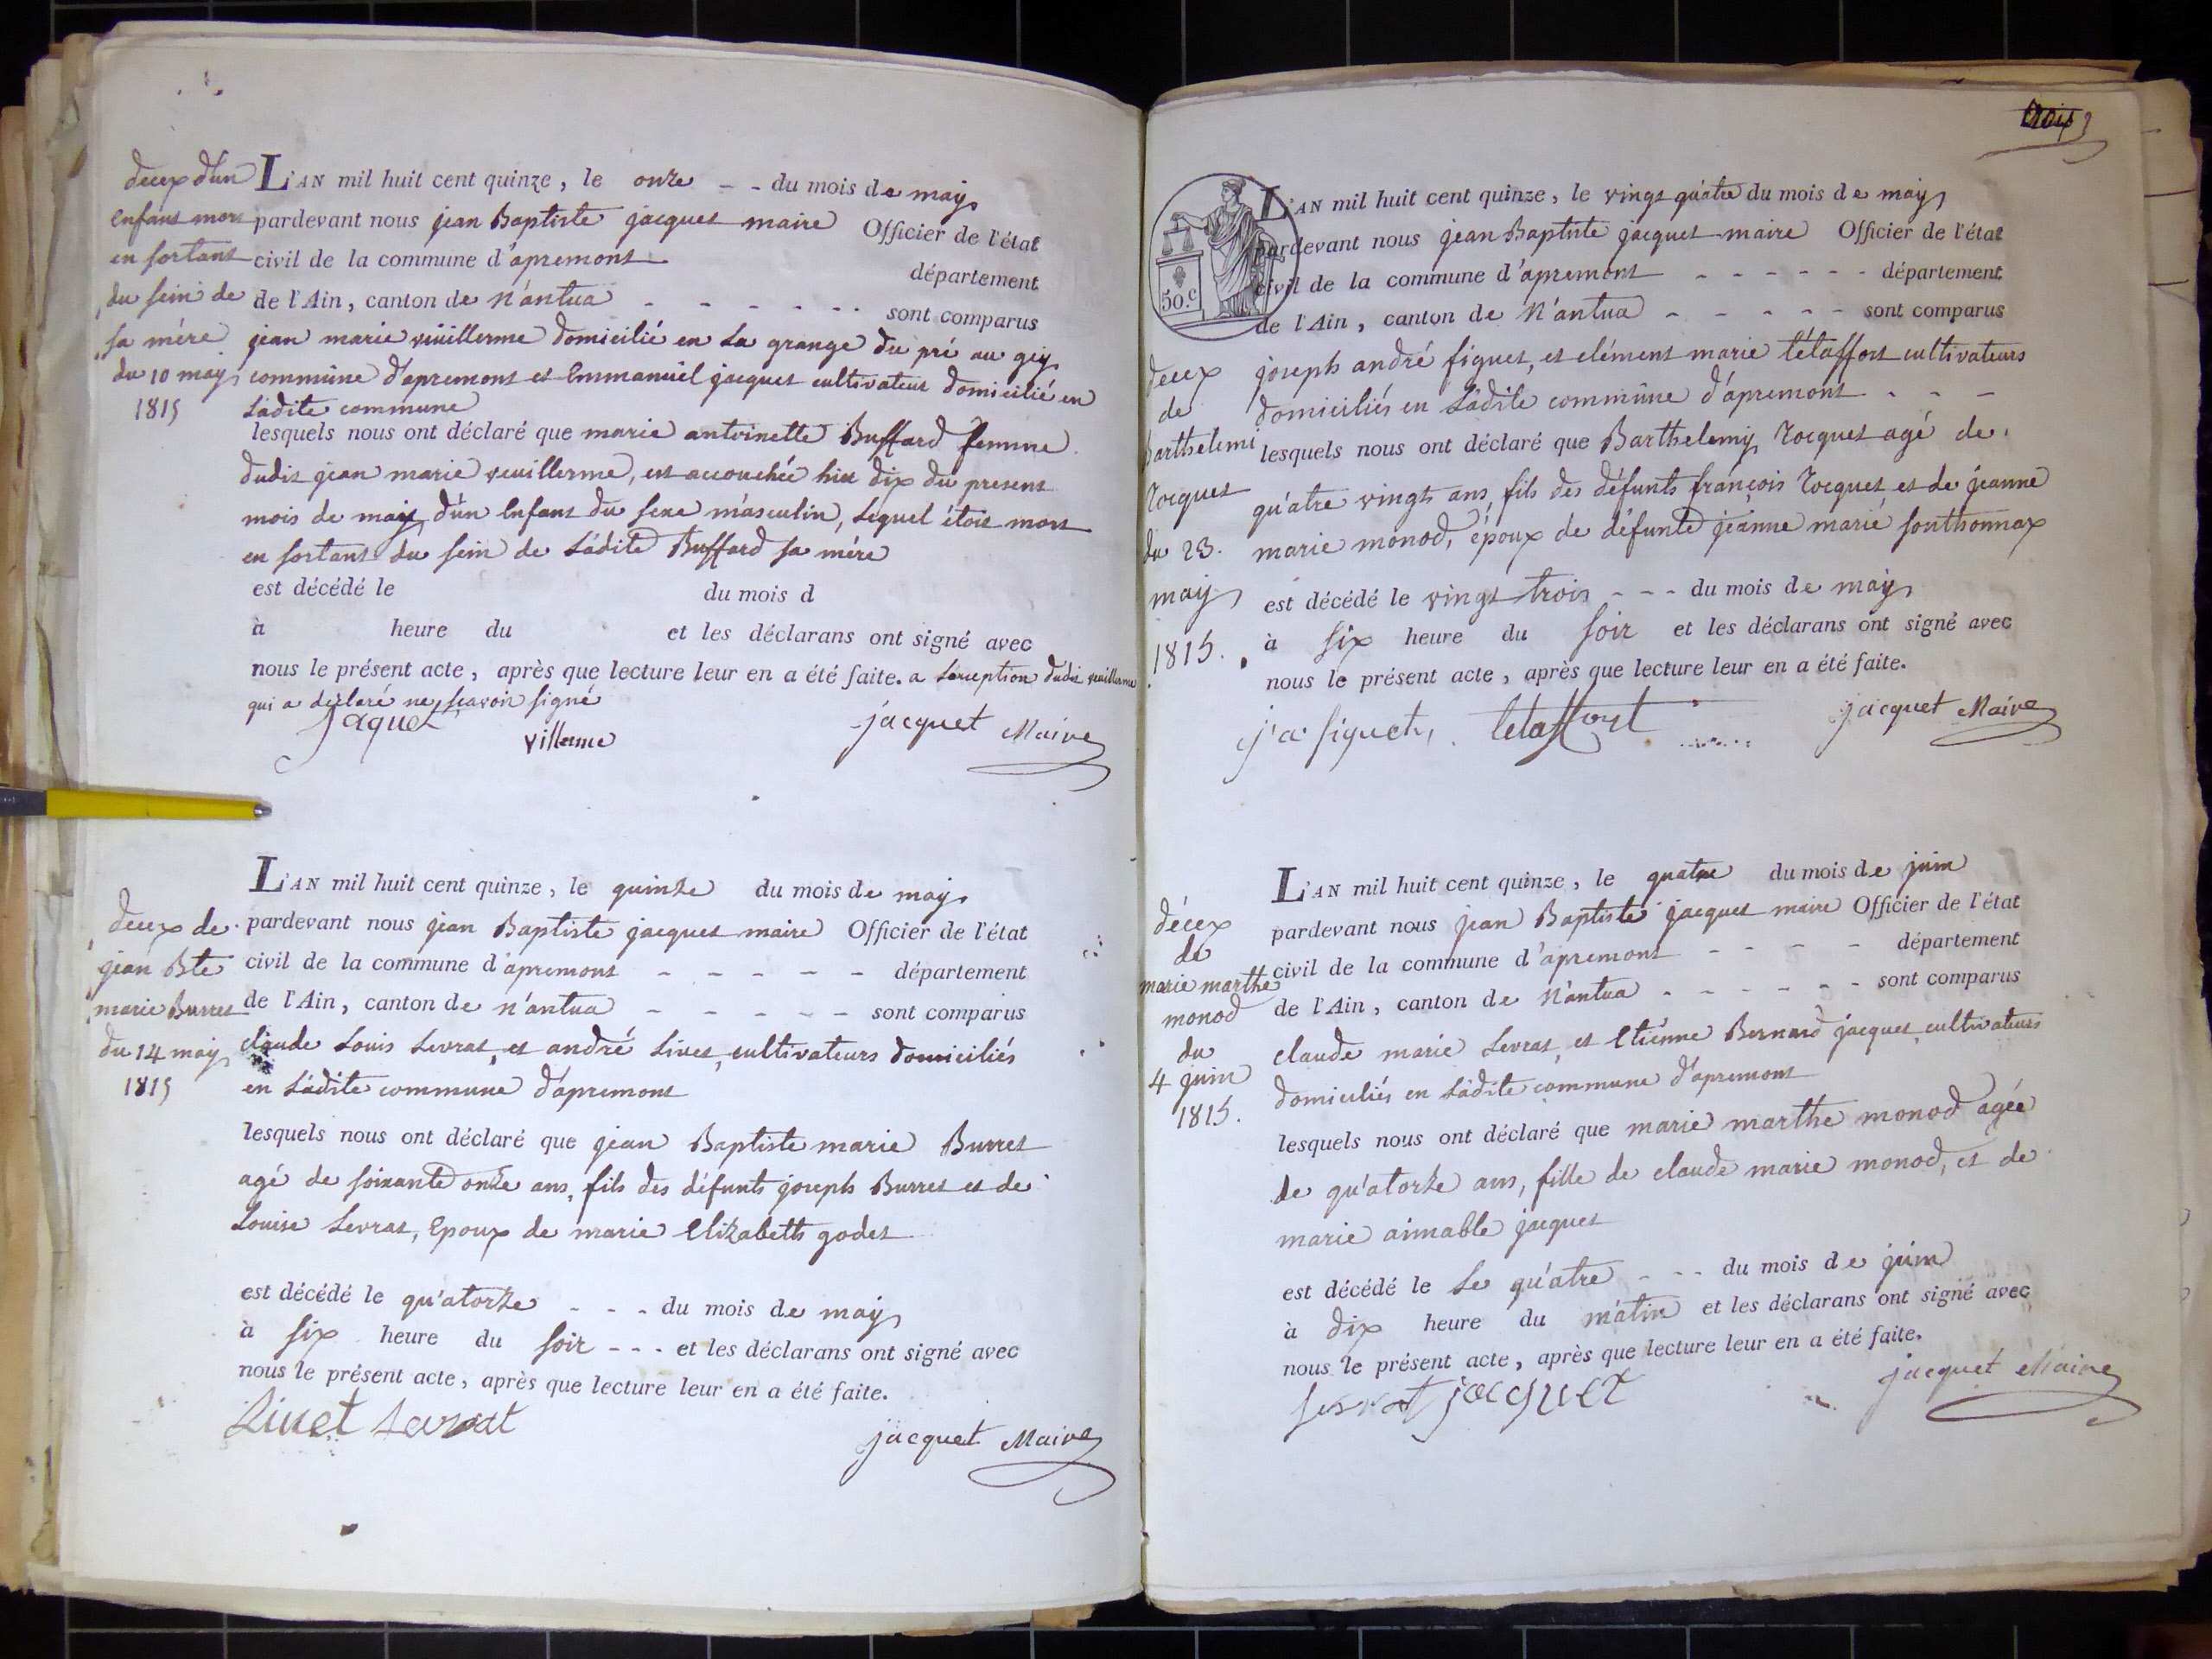 décex d'un
enfant mort
en sortant
du sein de
sa mére
du 10 may
1815
L'AN mil huit cent quinze, le onze - - du mois de may
pardevant nous jean Baptiste jacquet maire Officier de l'état
civil de la commune d'apremont département
de l'Ain, canton de n'antua - - - - - - sont comparus
jean marie vuillerme domicilié en la grange du pré au gey
commune d'apremont et Emmanuel jacquet cultivateur domicilié en
ladite commune
lesquels nous ont déclaré que marie antoinette Buffard femme
dudit jean marie vuillerme, est accouchée hier dix du present
mois de may, d'un Enfant du sexe masculin, lequel étoit mort
en sortant du sein de ladite Buffard sa mére
est décédé le du mois d
à heure du et les déclarans ont signé avec
nous le présent acte, après que lecture leur en a été faite. a l'exception dudit vuillerme
qui a déclaré ne sçavoir signé
Jaquet villerme jacquet Maire
décex de
jean Bte
marie Burret
du 14 may
1815
L'AN mil huit cent quinze, le quinze du mois de may
pardevant nous jean Baptiste jacquet maire Officier de l'état
civil de la commune d'apremont - - - - - département
de l'Ain, canton de n'antua - - - - - sont comparus
claude Louis Levrat, et andré Livet, cultivateurs domiciliés
en ladite commune d'apremont
lesquels nous ont déclaré que jean Baptiste marie Burret
agé de soixante onze ans, fils des défunts joseph Burret et de
Louise Levrat, Epoux de marie Elizabeth godet
est décédé le qu'atorze - - - du mois de may
à six heure du soir - - - et les déclarans ont signé avec
nous le présent acte, après que lecture leur en a été faite.
Livet Levrat jacquet Maire
trois 3
50.c
décex
de
Barthelemi
Tocquet
du 23.
may
1815.
L'AN mil huit cent quinze, le vingt quatre du mois de may
pardevant nous jean Baptiste jacquet maire Officier de l'état
civil de la commune d'apremont - - - - - - département
de l'Ain, canton de N'antua - - - - - sont comparus
joseph andré figuet, et clément marie létaffort cultivateurs
domiciliés en ladite commune d'apremont - - -
lesquels nous ont déclaré que Barthelemy Tocquet agé de
qu'atre vingts ans, fils des défunts françois Tocquet et de jeanne
marie monod, époux de défunte jeanne marie sonthonnax
est décédé le vingt trois - - - du mois de may
à six heure du soir et les déclarans ont signé avec
nous le présent acte, après que lecture leur en a été faite.
j a figuet, letaffort jacquet Maire
décex
de
marie marthe
monod
du
4 juin
1815.
L'AN mil huit cent quinze, le quatre du mois de juin
pardevant nous jean Baptiste jacquet maire Officier de l'état
civil de la commune d'apremont - - - - département
de l'Ain, canton de N'antua - - - - - - sont comparus
claude marie Levrat, et Etienne Bernard jacquet, cultivateurs
domiciliés en ladite commune d'apremont
lesquels nous ont déclaré que marie marthe monod agée
de qu'atorze ans, fille de claude marie monod, et de
marie aimable jacquet
est décédé le Le qu'atre - - - du mois de juin
à dix heure du matin et les déclarans ont signé avec
nous le présent acte, après que lecture leur en a été faite.
Levrat jacquet jacquet Maire